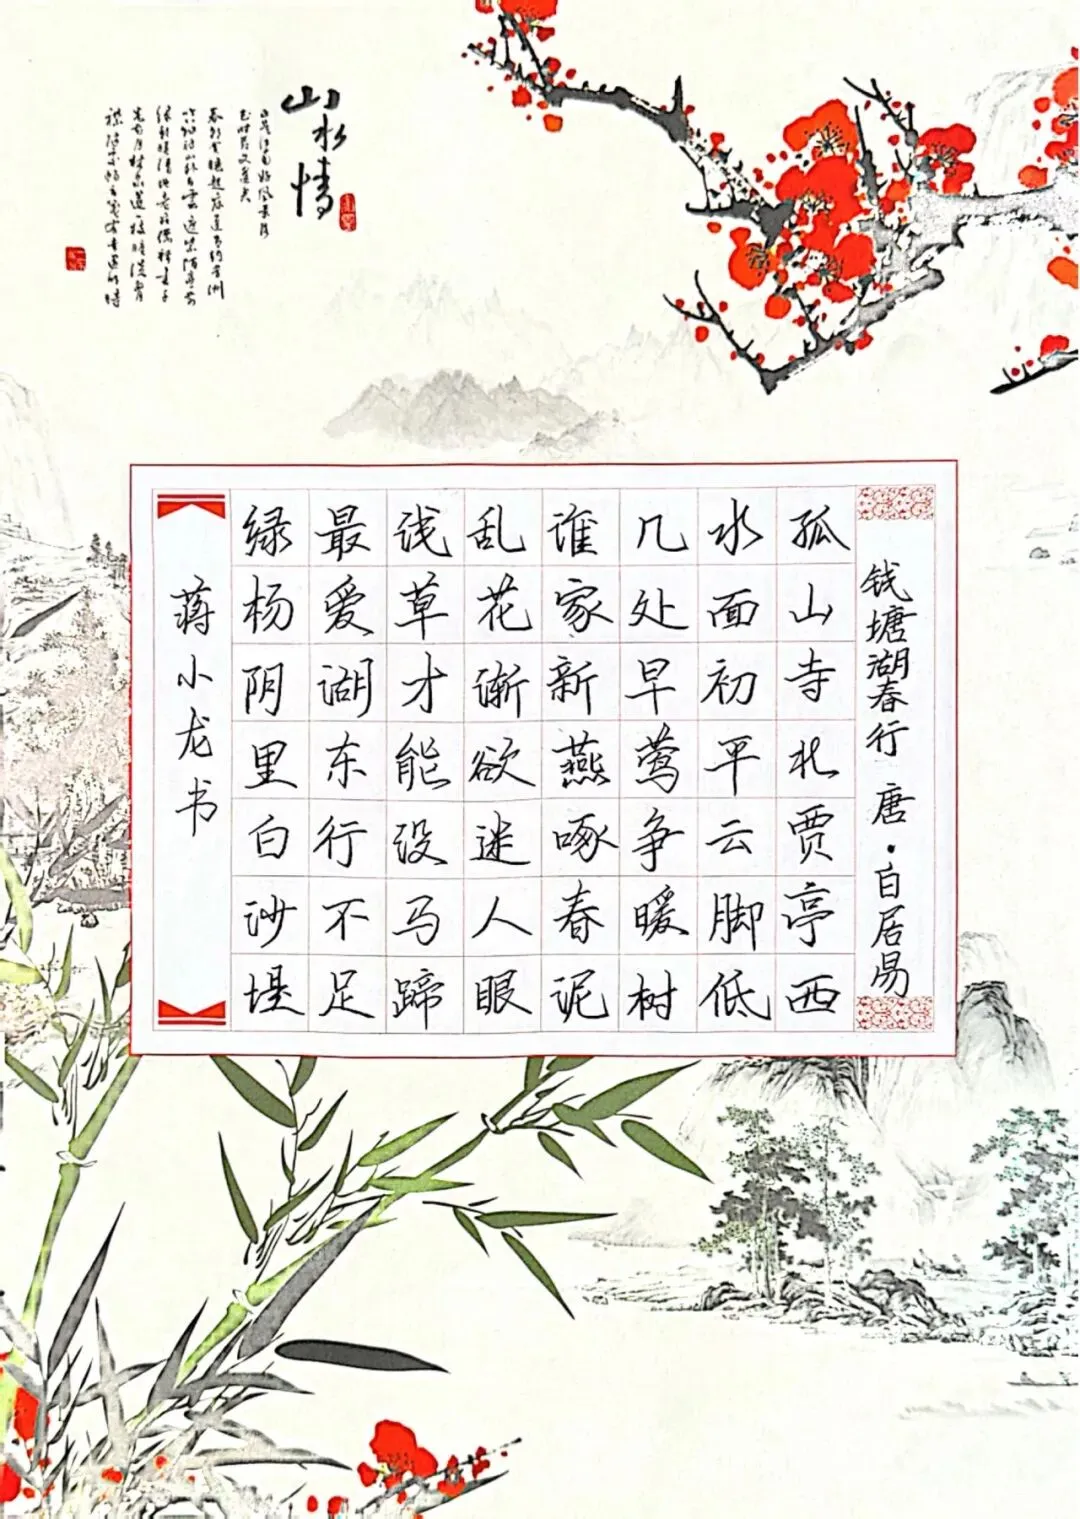 钱塘湖春行 唐·白居易
孤山寺北贾亭西
水面初平云脚低
几处早莺争暖树
谁家新燕啄春泥
乱花渐欲迷人眼
浅草才能没马蹄
最爱湖东行不足
绿杨阴里白沙堤
蒋小龙书
山水情